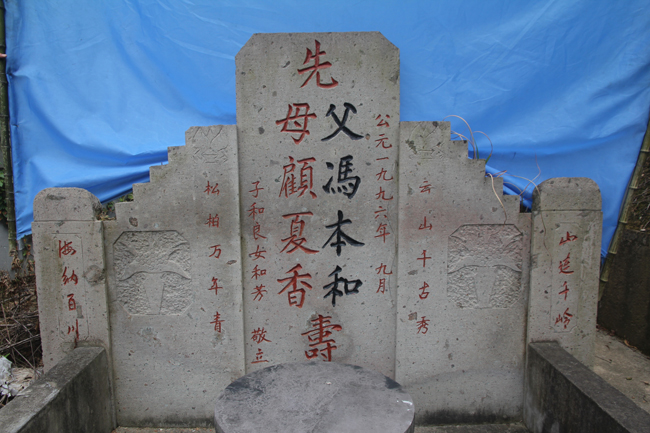 山千岭
云山千古秀
公元一九九六年 九月
先
父馮本和
母顧夏香
壽
子和良女和芳 敬立
松柏万年青
海纳百川